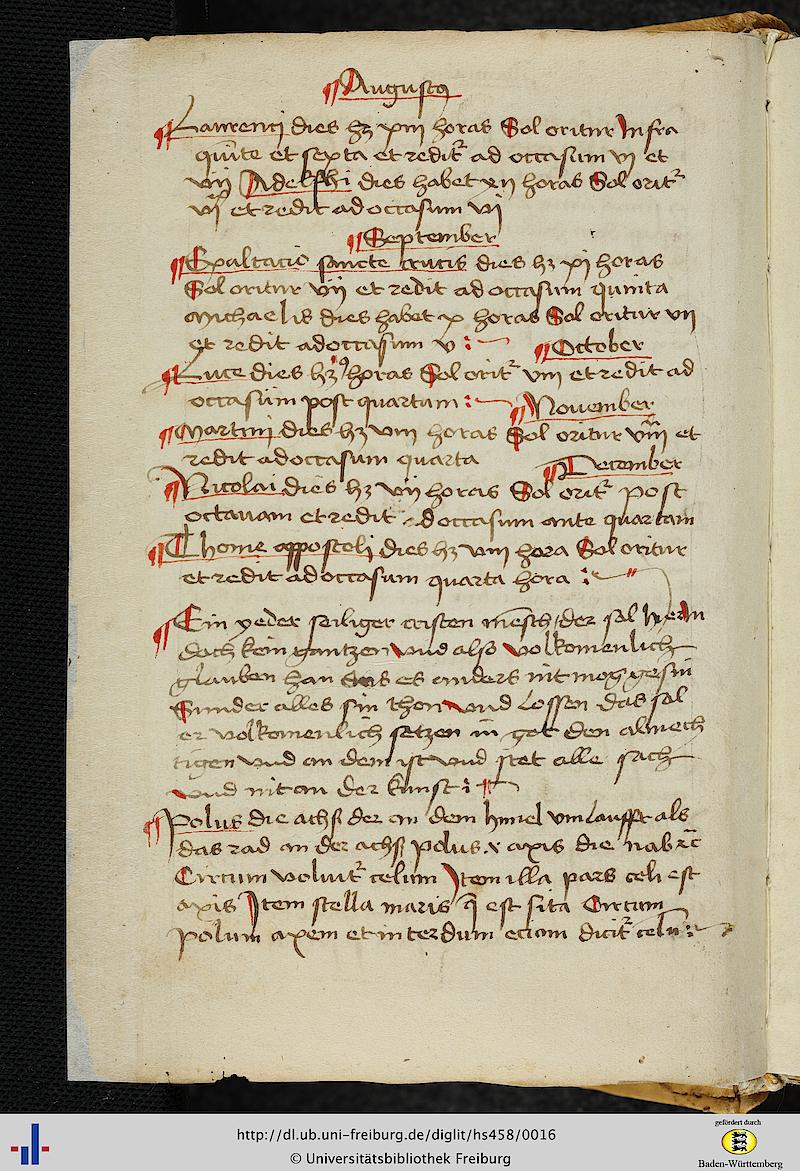 ¶ Augustus
¶ Laurencij dies hꝫ xiiij horas Sol oritur Infra
quite et septa et redit᷑ ad occasum vj et
vij Adelffhi dies habet xij horas Sol orit᷑
vj et redit ad occasum vj
¶ September
¶ Exaltacio sancte crucis dies hꝫ xj horas
Sol oritur vij et redit ad occasum quinta
Michaelis dies habet x horas Sol oritur vij
et redit ad occasum v :~ ¶ October
¶ Luce dies hꝫ 9 horas Sol orit᷑ viij et redit ad
occasum post quartam :~ ¶ November
¶ Martini dies hꝫ viij horas Sol oritur viij et
redit ad occasum quarta ¶ December
¶ Nicolai dies hꝫ vij horas Sol orit᷑ post
octauam et redit ad occasum ante quartam
¶ Thome appostoli dies hꝫ viij hora Sol oritur
et redit ad occasum quarta hora :~
¶ Ein yeder seiliger cristen mēsch der sol
doch kein gantzen vnd also volkomenlich
glauben han es anders nit mog gesin
Sunder alles sin thon vnd Lossen das sol
er volkomenlich setzen in got den almech
tigen vnd an dem ist vnd stet alle sach
vnd nit an der kunst :~
¶ Polus die achß der an dem himel vmLaufft als
das rad an der achß polus. axis die nab
Circum voluit᷑ celum Item illa pars celi est
axis Item stella maris q̄ est sita Circum
Polum axem et interdum eciam dicit᷑ celū :~
http://dl.ub.uni-freiburg.de/diglit/hs458/0016
© Universitätsbibliothek Freiburg
gefördert durch
Baden-Württemberg